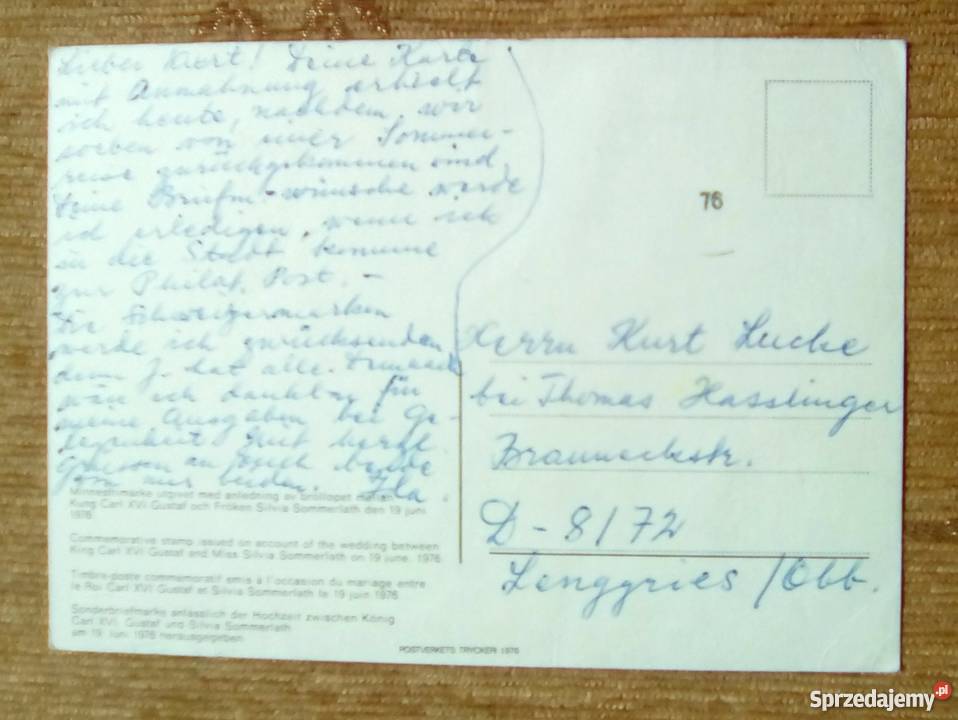 Lieber Kurt! Deine Karte
mit Anmahnung erhielt
ich heute, nachdem, wir
soeben von unser Sommer-
reise zurückgekommen sind.
Deine Briefm.-wünsche werde
ich erledigen, wenn ich
in die Stadt komme
zur Philat. Post. -
Die Schweizermarken
werde ich zurücksenden
denn J. hat alle.
wär ich dankbar für
meine Ausgaben bei Ge-
legenheit. Mit herzl.
Grüssen an Euch beide
von uns beiden.
76
Herrn Kurt Lucke
bei Thomas Hasslinger
Brauneckstr.
D-8172
Lenggries /Obb.
Minnesfrimärke utgivet med anledning av bröllopet mellan
Kung Carl XVI Gustaf och Fröken Silvia Sommerlath den 19 juni
1976
Commemorative stamp issued on account of the wedding between
King Carl XVI Gustaf and Miss Silvia Sommerlath on 19 june. 1976
Timbre-poste commemoratif emis à l'occasion du mariage entre
le Roi Carl XVI Gustaf et Silvia Sommerlath le 19 juin 1976
Sonderbriefmarke anlässlich der Hochzeit zwischen König
Carl XVI. Gustaf und Silvia Sommerlath
am 19. Juni. 1976 herausgegeben
POSTVERKETS TRYCKERI 1976
Sprzedajemy.pl